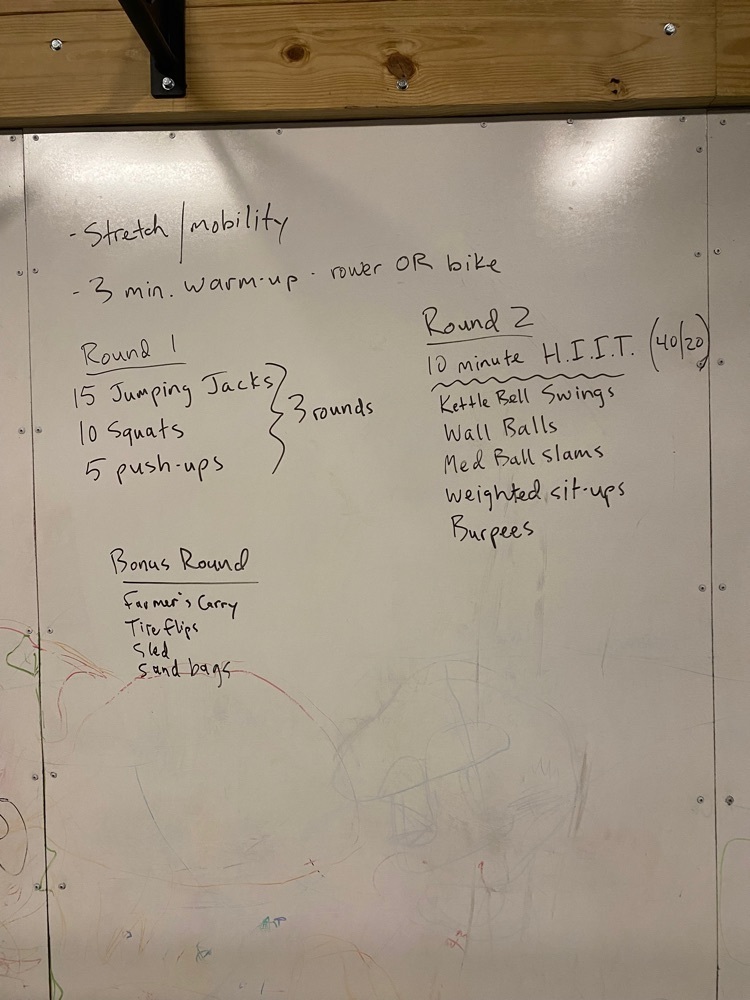 - Stretch/mobility
- 3 min. warm-up - rower OR bike
Round 1
15 Jumping Jacks
10 Squats
5 push-ups
3 rounds
Round 2
10 minute H.I.I.T. (40/20)
Kettle Bell Swings
Wall Balls
Med Ball slams
weighted sit-ups
Burpees
Bonus Round
Farmer's Carry
Tire flips
Sled
Sand bags